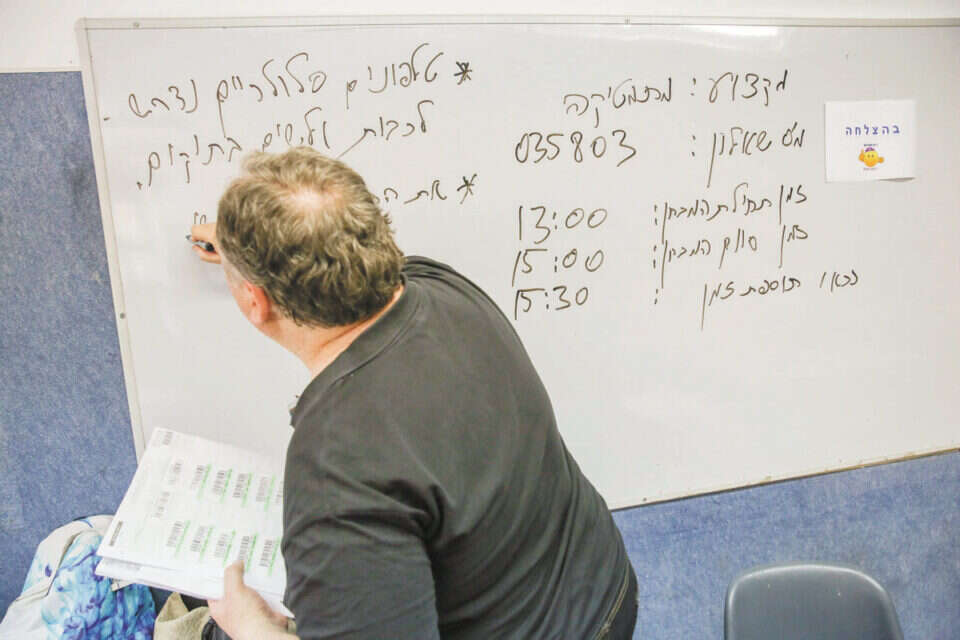 מקצוע: מתמטיקה
מס׳ שאלון: 035803
זמן תחילת המבחן: 13:00
זמן סיום המבחן: 15:00
זכאי תוספת זמן: 15:30
* טלפונים סלולריים נדרש
לכבות ולשים בתיקים.
* את
בהצלחה